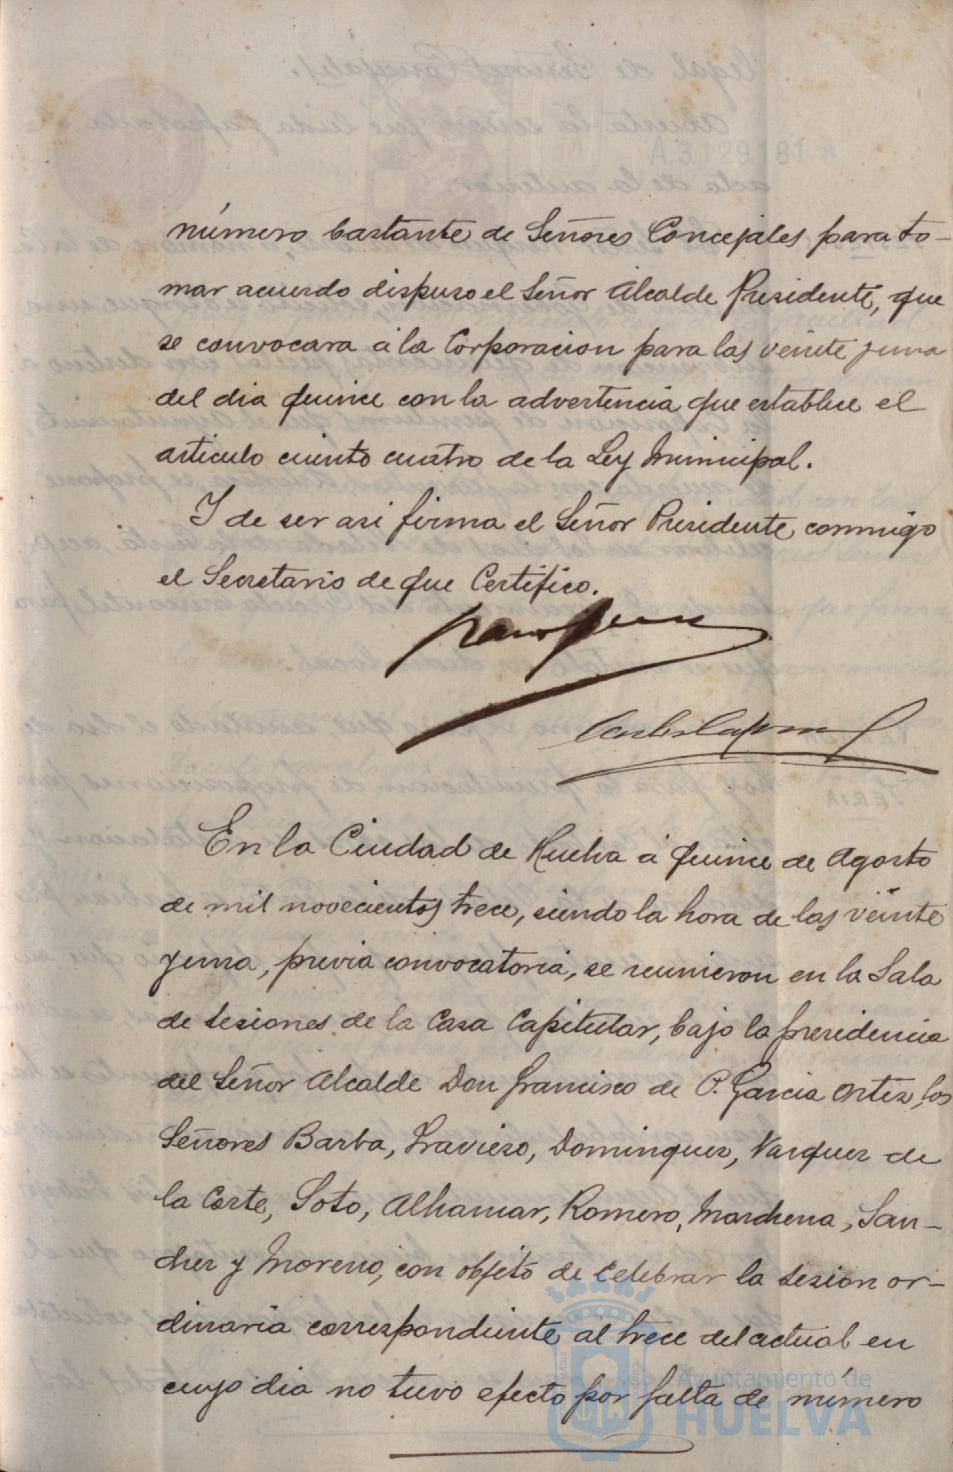 número bastante de Señores Concejales para to-
mar acuerdo dispuso el Señor Alcalde Presidente, que
se convocara á la Corporacion para las veinte y una
del dia quince con la advertencia que establece el
articulo ciento cuatro de la Ley Municipal.
Y de ser asi firma el Señor Presidente conmigo
el Secretario de que Certifico.
En la Ciudad de Huelva á quince de Agosto
de mil novecientos trece, siendo la hora de las veinte
y una, previa convocatoria, se reunieron en la Sala
de Sesiones de la Casa Capitular, bajo la presidencia
del Señor Alcalde Don Francisco de P. Garcia Ortiz, los
Señores Barba, Travieso, Dominguez, Vazquez de
la Corte, Soto, Alhamar, Romero, Marchena, San-
chez y Moreno, con objeto de celebrar la sesion or-
dinaria correspondiente al trece del actual en
cuyo dia no tuvo efecto por falta de número
Ayuntamiento de
HUELVA